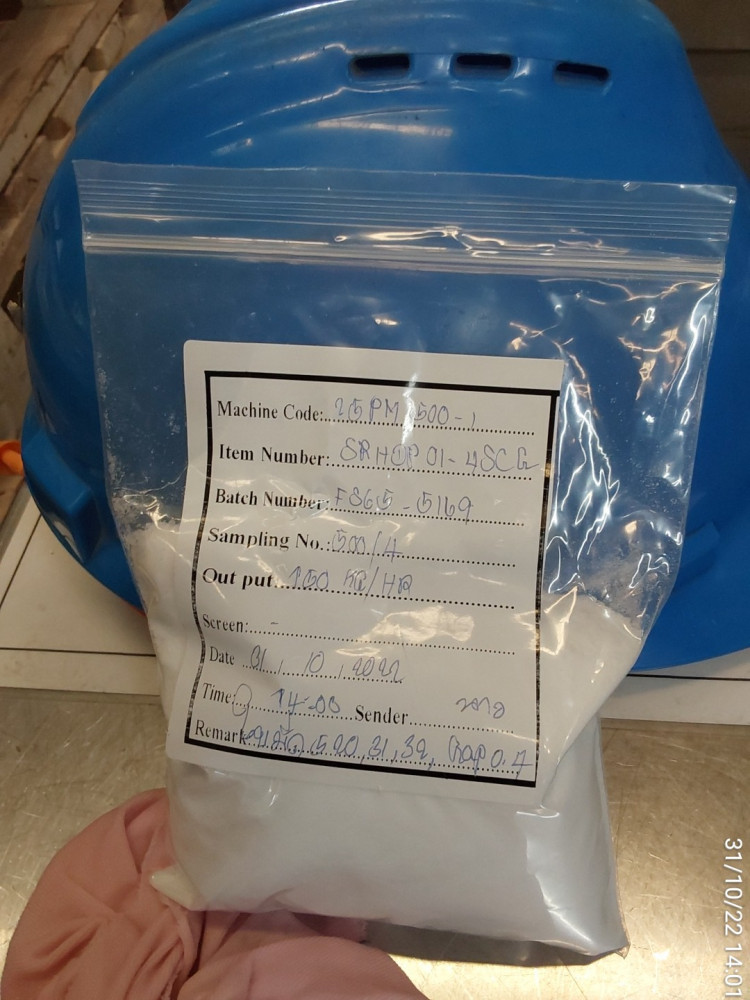 Machine Code: 25PM 500-1
Item Number: SRHOP01-4SCG
Batch Number: F865-5169
Sampling No.: 500/4
Out put 150 KG/HR
Screen: -
Date 31, 10, 2022
Time: 14-00 Sender
Remark 520, 31, 32, Gap 0.7
31/10/22 14:01